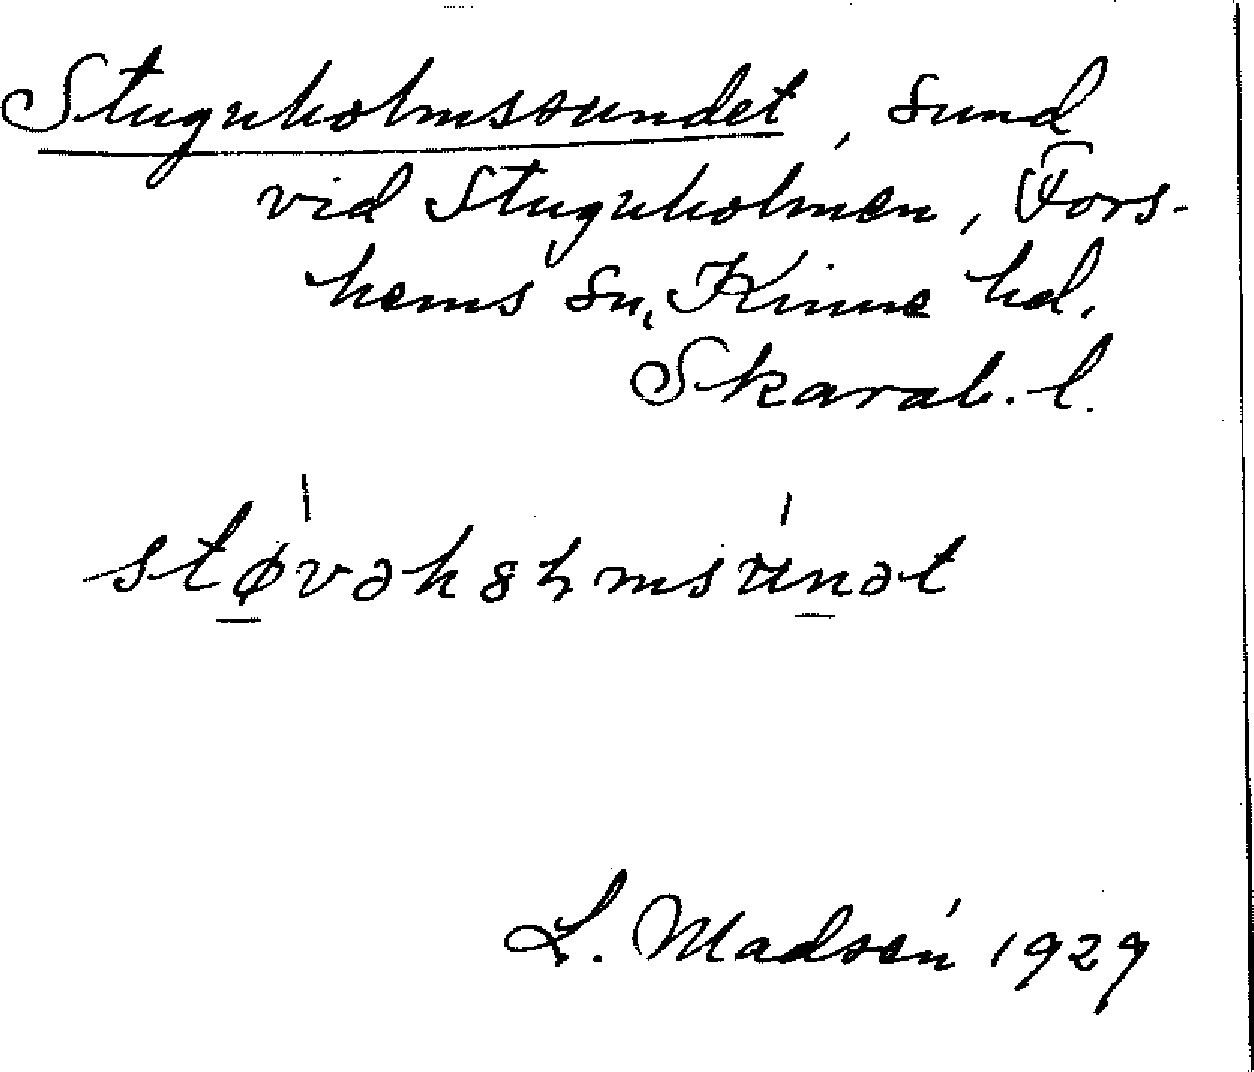 Stuguholmssundet, sund
vid Stuguholmen, Fors-
hems sn, Kinne hd.
Skarab. l.
støvəhɞɦmsunət
L. Madsén 1929